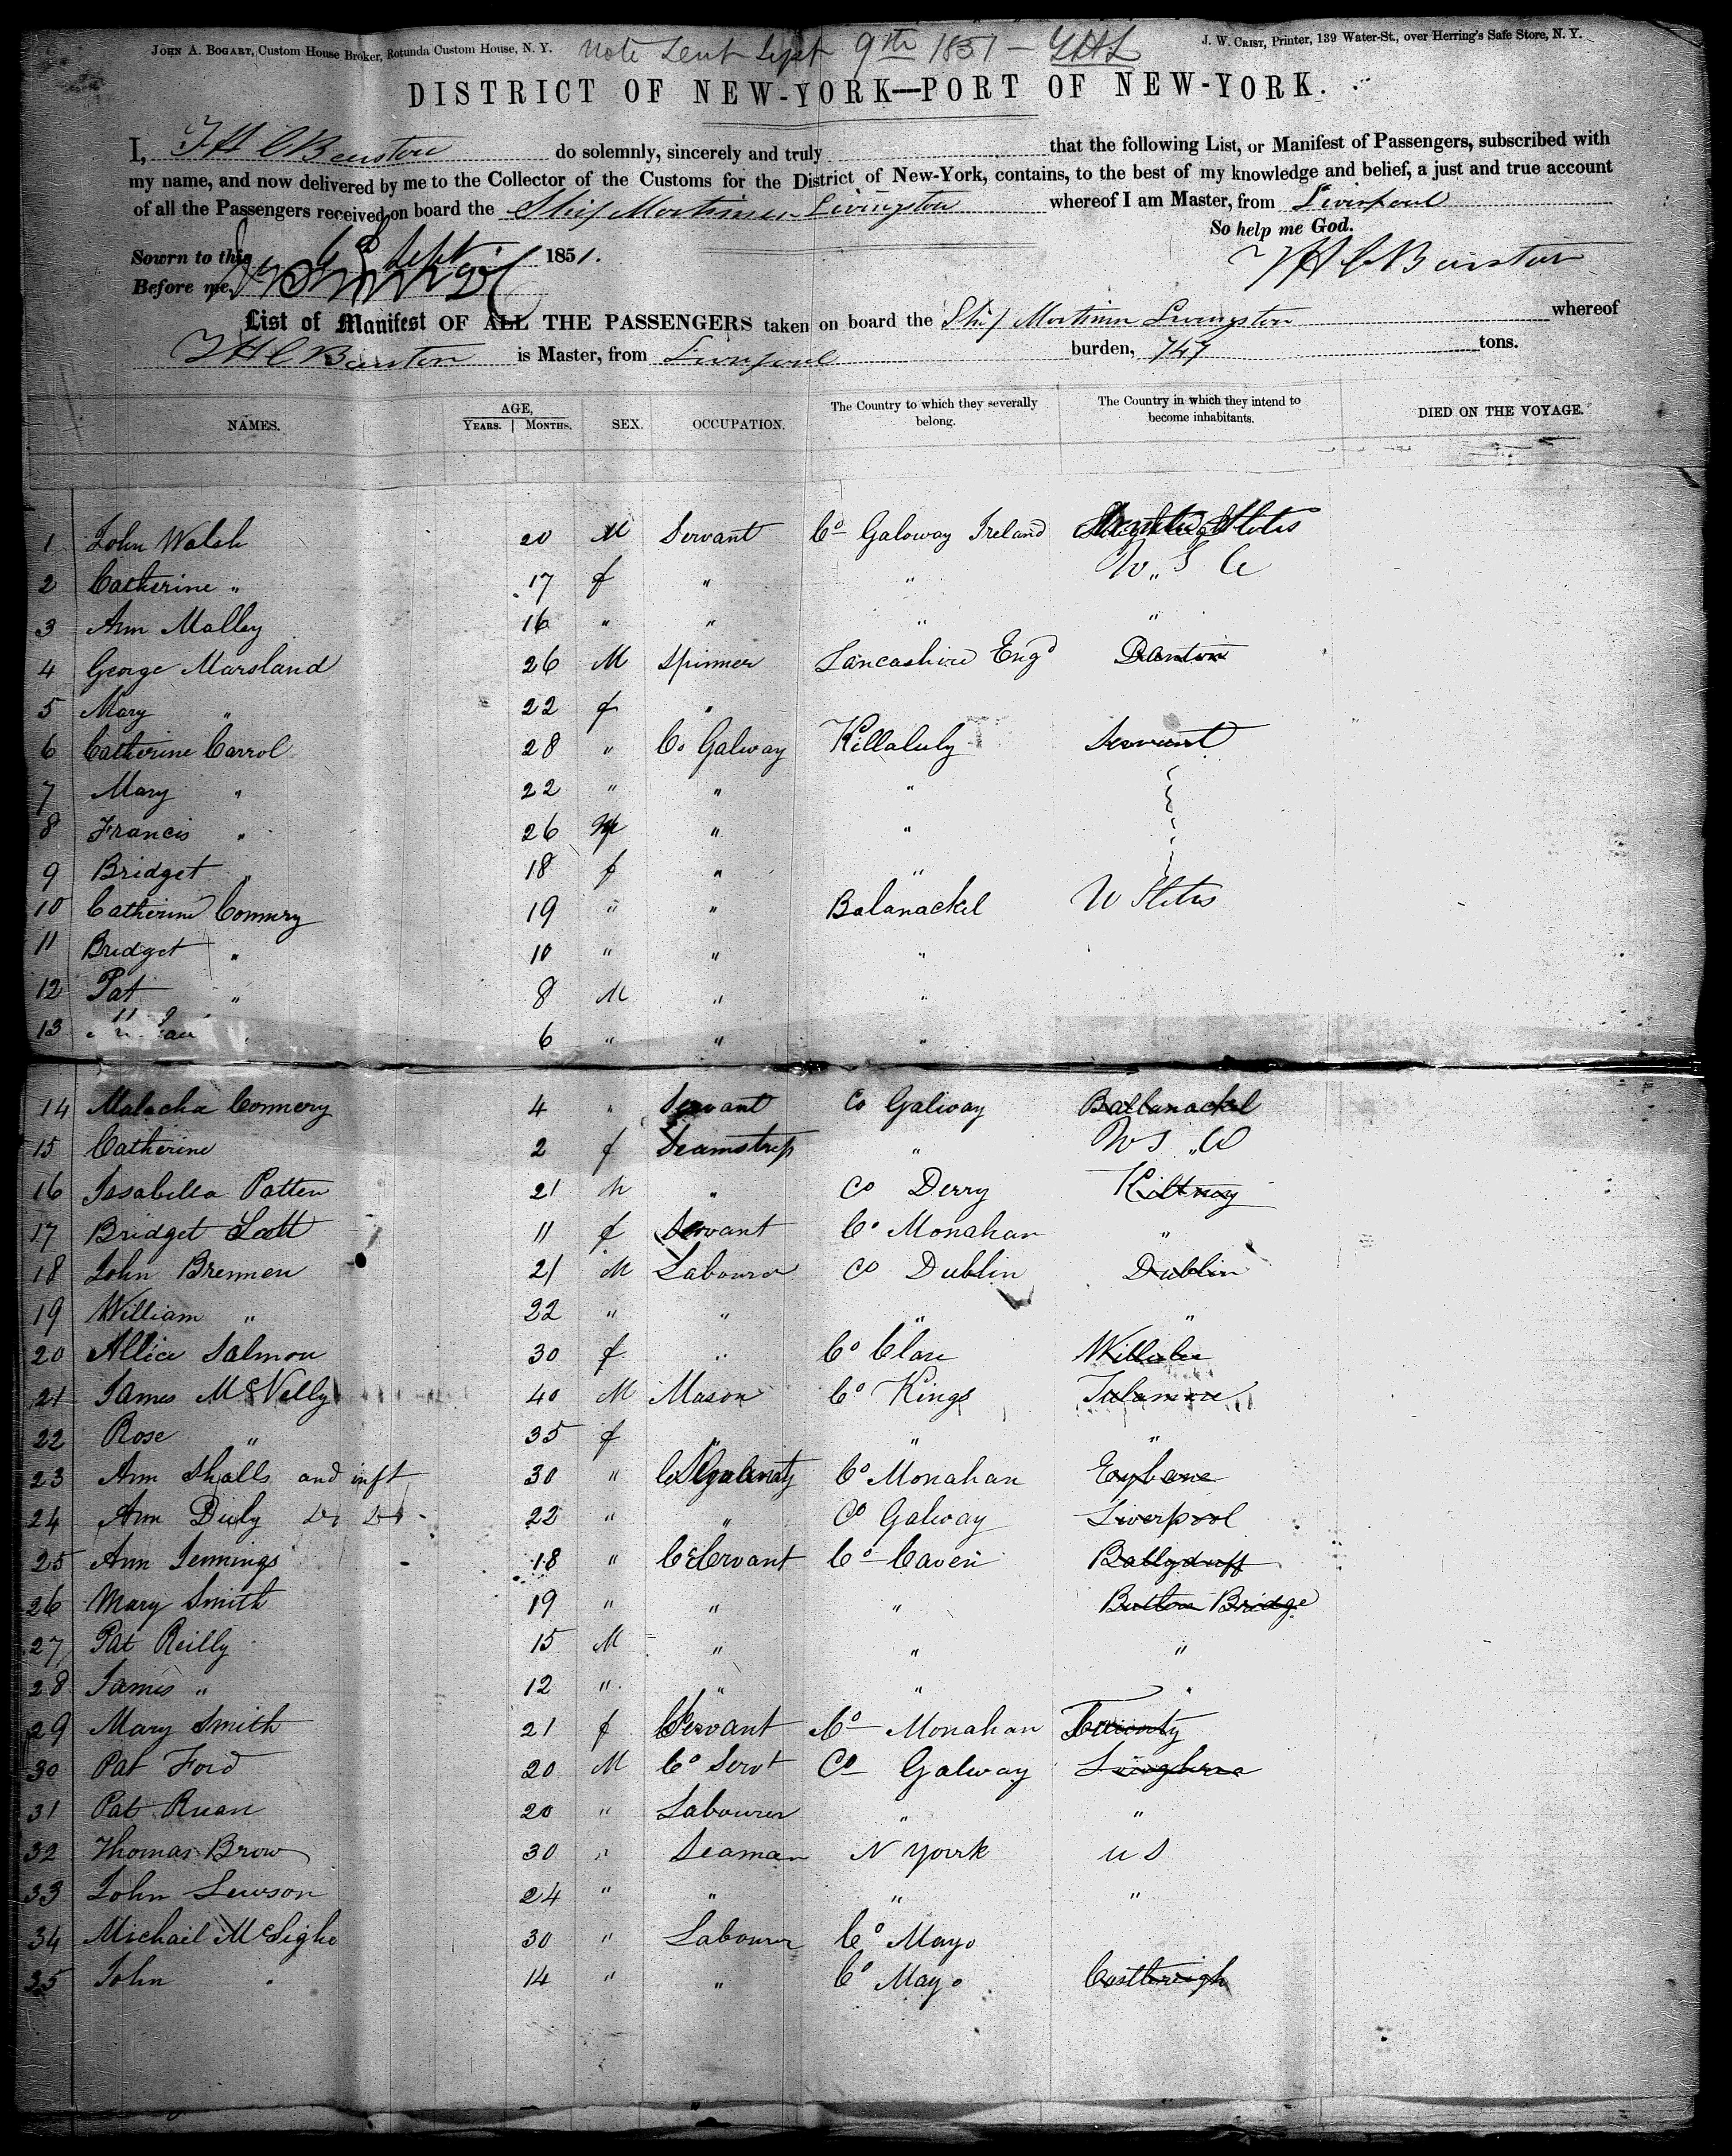 JOHN A. BOGART, Custom House Broker, Rotunda Custom House, N. Y. Note Sent Sept 9th 1851 — J. W. CRIST, Printer, 139 Water-St., over Herring's Safe Store, N. Y.
DISTRICT OF NEW-YORK—PORT OF NEW-YORK.
I, do solemnly, sincerely and truly that the following List, or Manifest of Passengers, subscribed with
my name, and now delivered by me to the Collector of the Customs for the District of New-York, contains, to the best of my knowledge and belief, a just and true account
of all the Passengers received on board the Ship Mortimer Livingston whereof I am Master, from Liverpool
So help me God.
Sworn to this Sept 1851.
Before me,
List of Manifest OF ALL THE PASSENGERS taken on board the Ship Mortimer Livingston whereof
is Master, from Liverpool burden, 747 tons.
NAMES. AGE, YEARS. MONTHS. SEX. OCCUPATION. The Country to which they severally belong. The Country in which they intend to become inhabitants. DIED ON THE VOYAGE.
1 John Walsh 20 M Servant Co Galoway Ireland States
2 Catherine " 17 f " " U S
3 Ann Malley 16 " " " "
4 George Marsland 26 M Spinner Lancashire Engd
5 Mary " 22 f "
6 Catherine Carrol 28 " Co Galway Killaluly Servant
7 Mary " 22 " " "
8 Francis " 26 " "
9 Bridget " 18 f " "
10 Catherine Connery 19 " " Balanackel U States
11 Bridget " 10 " " "
12 Pat " 8 M " "
13 6 " " "
14 Malacha Connery 4 " Servant Co Galway Ballanackel
15 Catherine 2 f Seamstress "
16 Issabella Patten 21 M " Co Derry
17 Bridget Scott 11 f Servant Co Monahan "
18 John Brennen 21 M Labourer Co Dublin Dublin
19 William " 22 " " " "
20 Allice Salmon 30 f " Co Clare
21 James McNelly 40 M Mason Co Kings Tulamore
22 Rose " 35 f " " "
23 Ann Shalls and inft 30 " Co Monahan
24 Ann Duly Do Do 22 " " Co Galway Liverpool
25 Ann Jennings 18 " Servant Co Caven Ballyduff
26 Mary Smith 19 " " " Butlow Bridge
27 Pat Reilly 15 M " " "
28 James " 12 " " " "
29 Mary Smith 21 f Servant Co Monahan
30 Pat Ford 20 M Co Servt Co Galway
31 Pat Ruan 20 " Labourer " "
32 Thomas Brow 30 " Seaman N York U S
33 John Lewson 24 " " " "
34 Michail McTighe 30 " Labourer Co Mayo
35 John " 14 " " Co Mayo